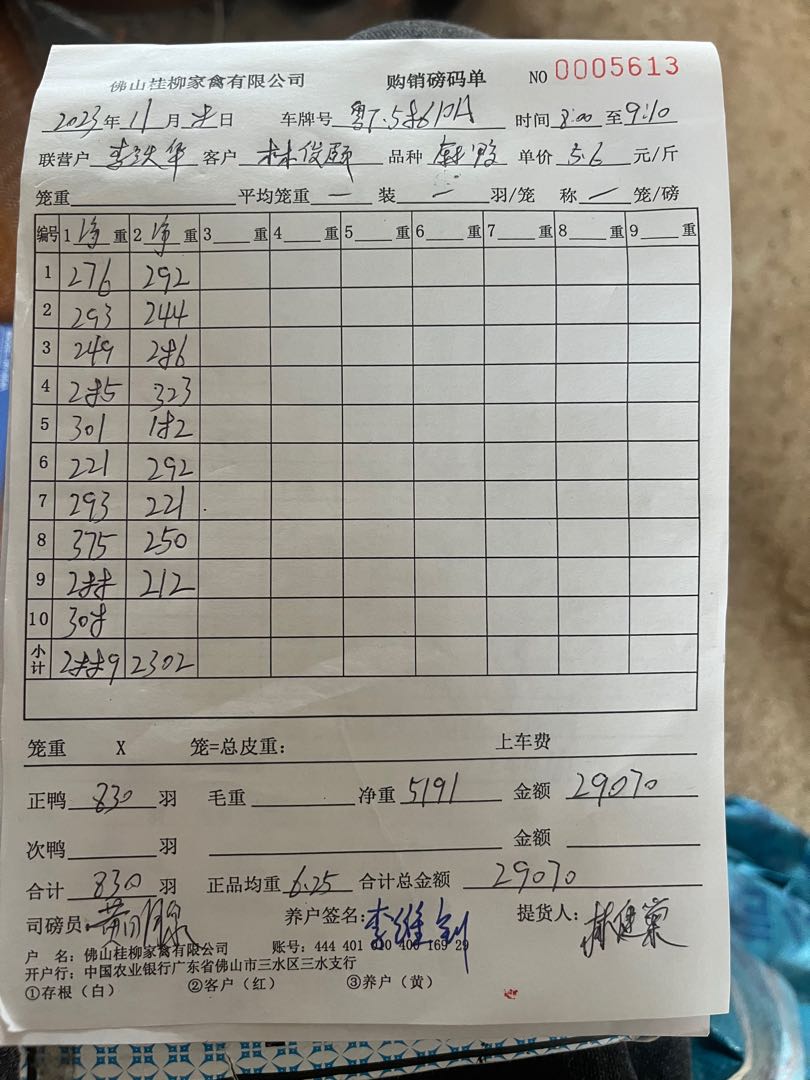 佛山桂柳家禽有限公司 购销磅码单 NO 0005613
2023年11月8日 车牌号 时间 8:00 至 9:10
联营户 客户 林俊颐 品种 单价 5.6 元/斤
笼重 平均笼重 一 装 一 羽/笼 称 一 笼/磅
编号 1 净 重 2 净 重 3 重 4 重 5 重 6 重 7 重 8 重 9 重
1 276 292
2 293 244
3 249 286
4 285 323
5 301 182
6 221 292
7 293 221
8 375 250
9 288 212
10 308
小计 2889 2302
笼重 X 笼=总皮重: 上车费
正鸭 830 羽 毛重 净重 5191 金额 29070
次鸭 羽 金额
合计 830 羽 正品均重 6.25 合计总金额 29070
司磅员: 养户签名: 李维钊 提货人: 林健
户 名: 佛山桂柳家禽有限公司 账号: 444 401 400 169 29
开户行: 中国农业银行广东省佛山市三水区三水支行
①存根(白) ②客户(红) ③养户(黄)